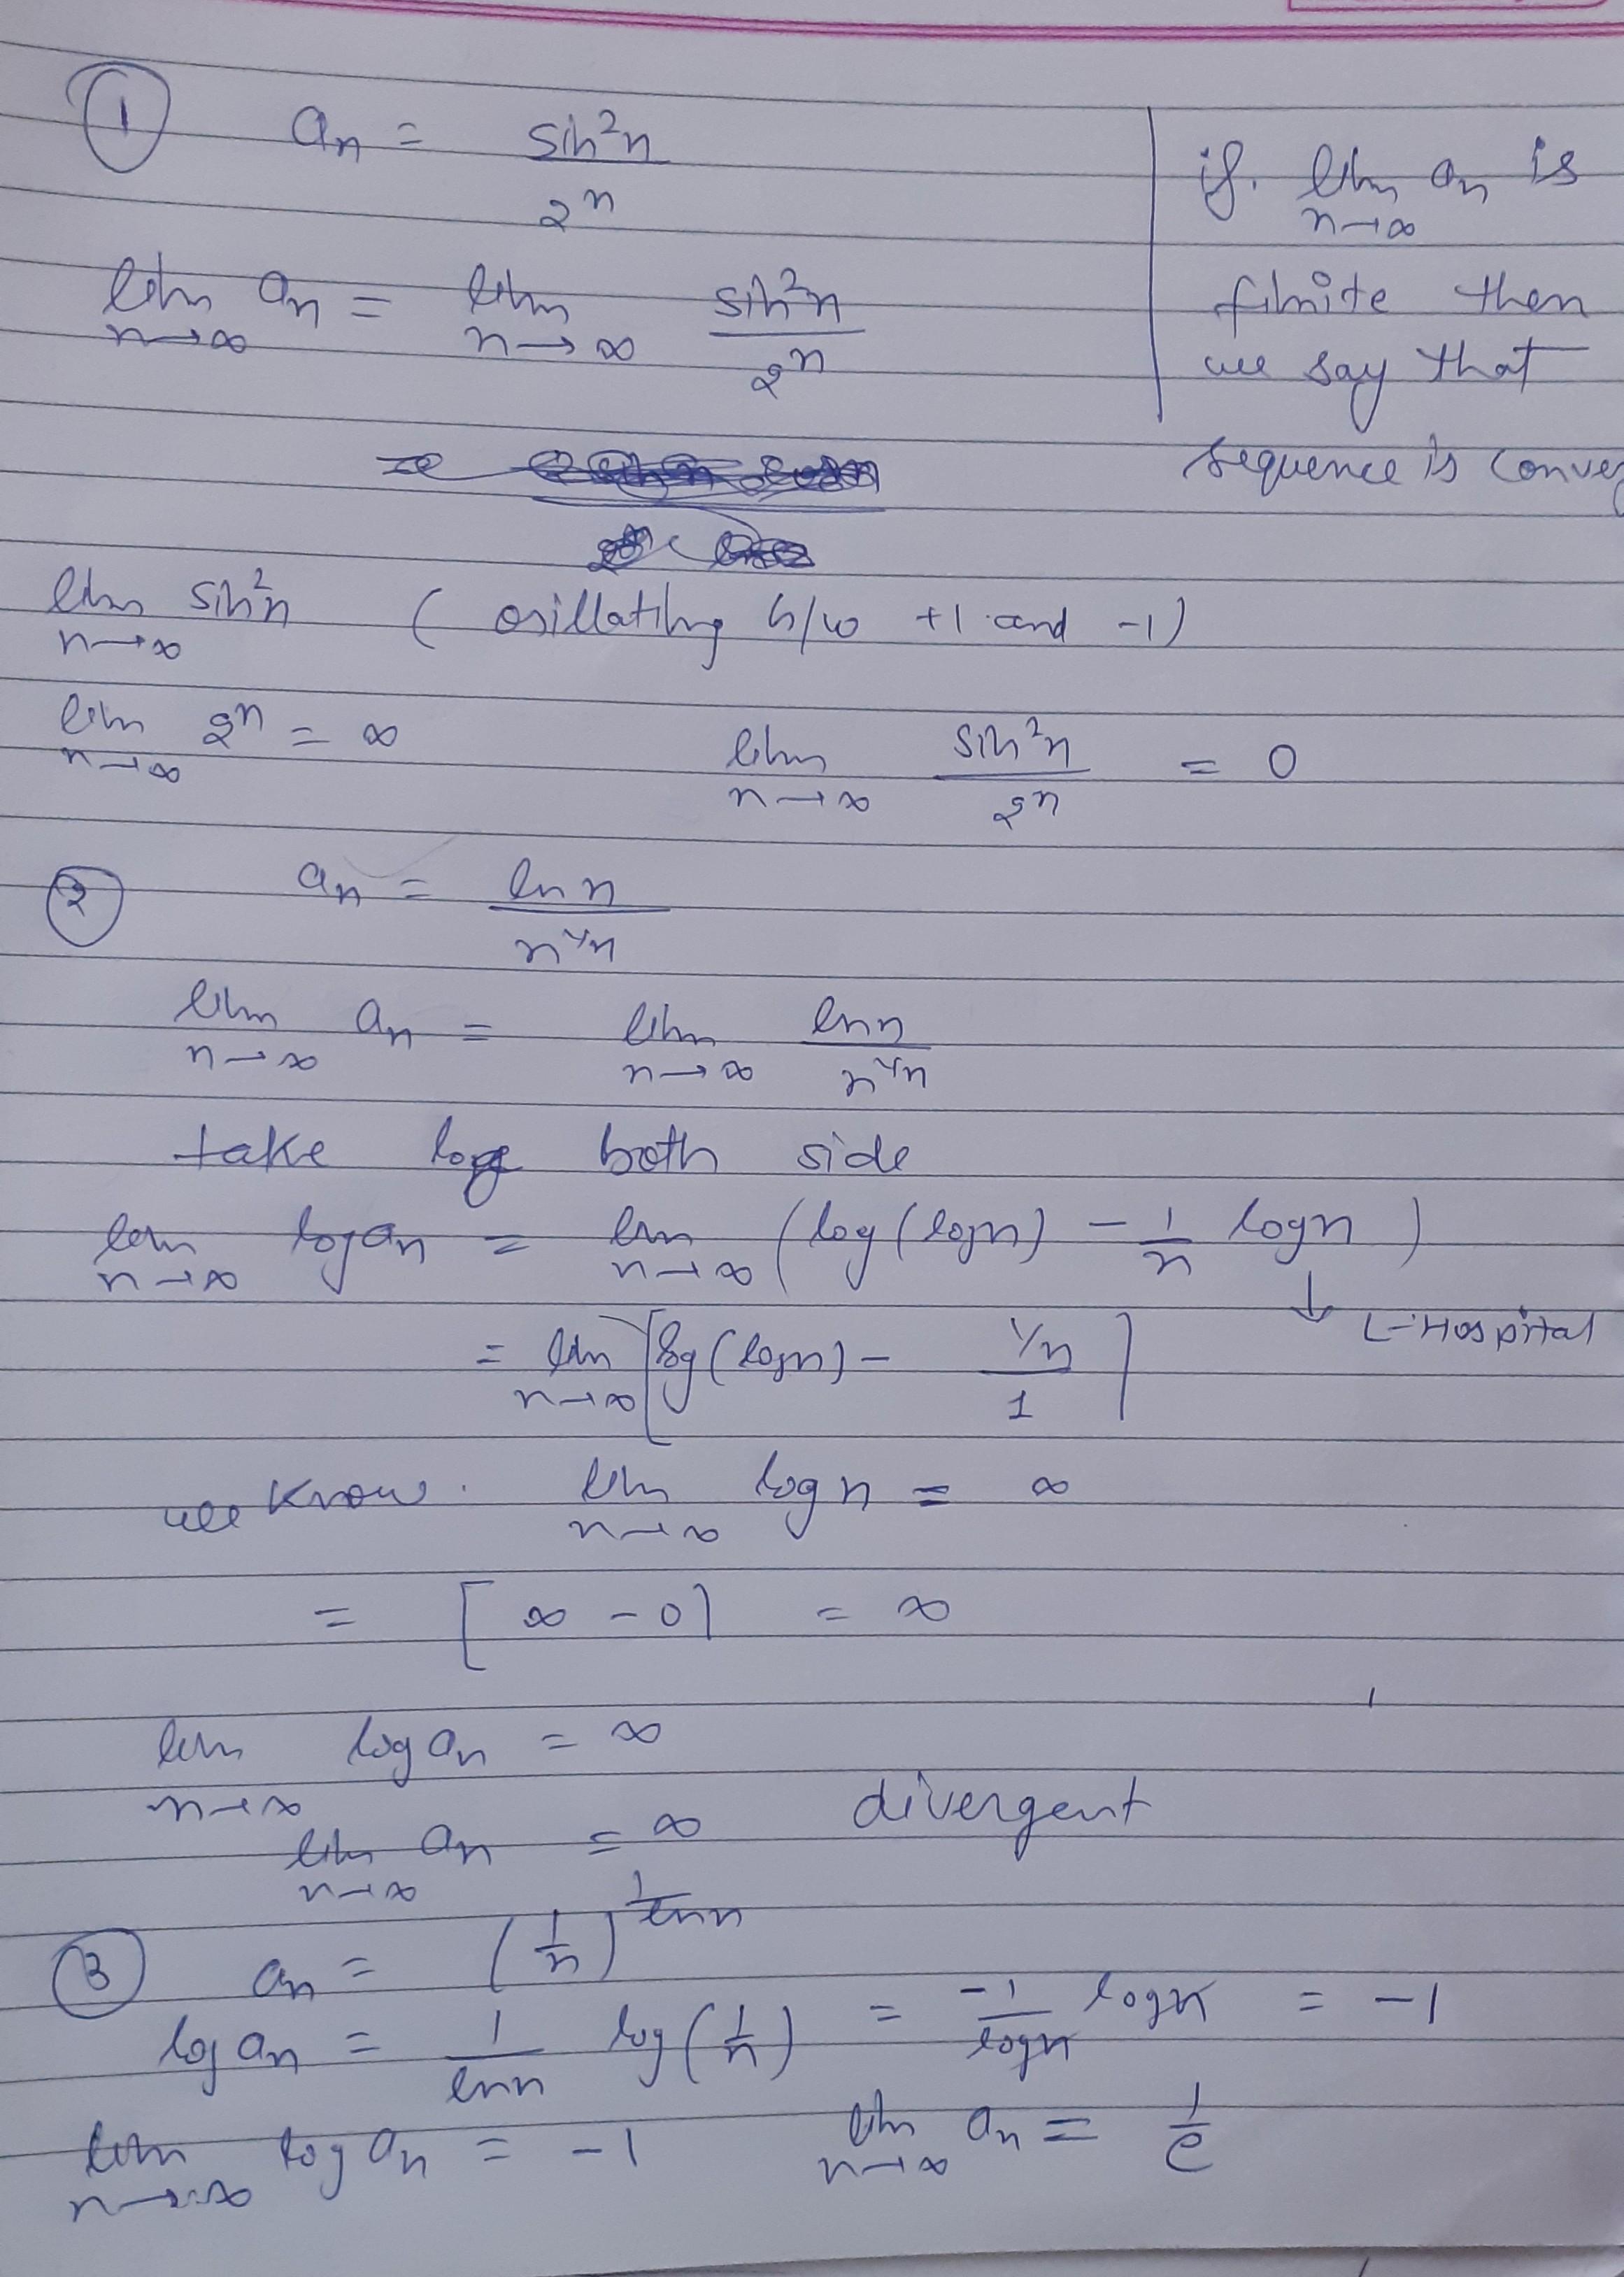 ① aₙ = sin²n / 2ⁿ
if. lim n→∞ aₙ is
finite then
we say that
sequence is conver
lim n→∞ aₙ = lim n→∞ sin²n / 2ⁿ
=
lim n→∞ sin²n ( osillating b/w +1 and -1)
lim n→∞ 2ⁿ = ∞ lim n→∞ sin²n / 2ⁿ = 0
② aₙ = ln n / n^(1/n)
lim n→∞ aₙ = lim n→∞ ln n / n^(1/n)
take log both side
lim n→∞ log aₙ = lim n→∞ (log (logn) - 1/n logn )
↓ L-Hospital
= lim n→∞ [log (logn) - (1/n) / 1 ]
we know. lim n→∞ log n = ∞
= [ ∞ - 0] = ∞
lim n→∞ log aₙ = ∞
lim n→∞ aₙ = ∞ divergent
③ aₙ = (1/n)^(1/ln n)
log aₙ = 1/ln n log (1/n) = -1/logn logn = -1
lim n→∞ log aₙ = -1 lim n→∞ aₙ = 1/e